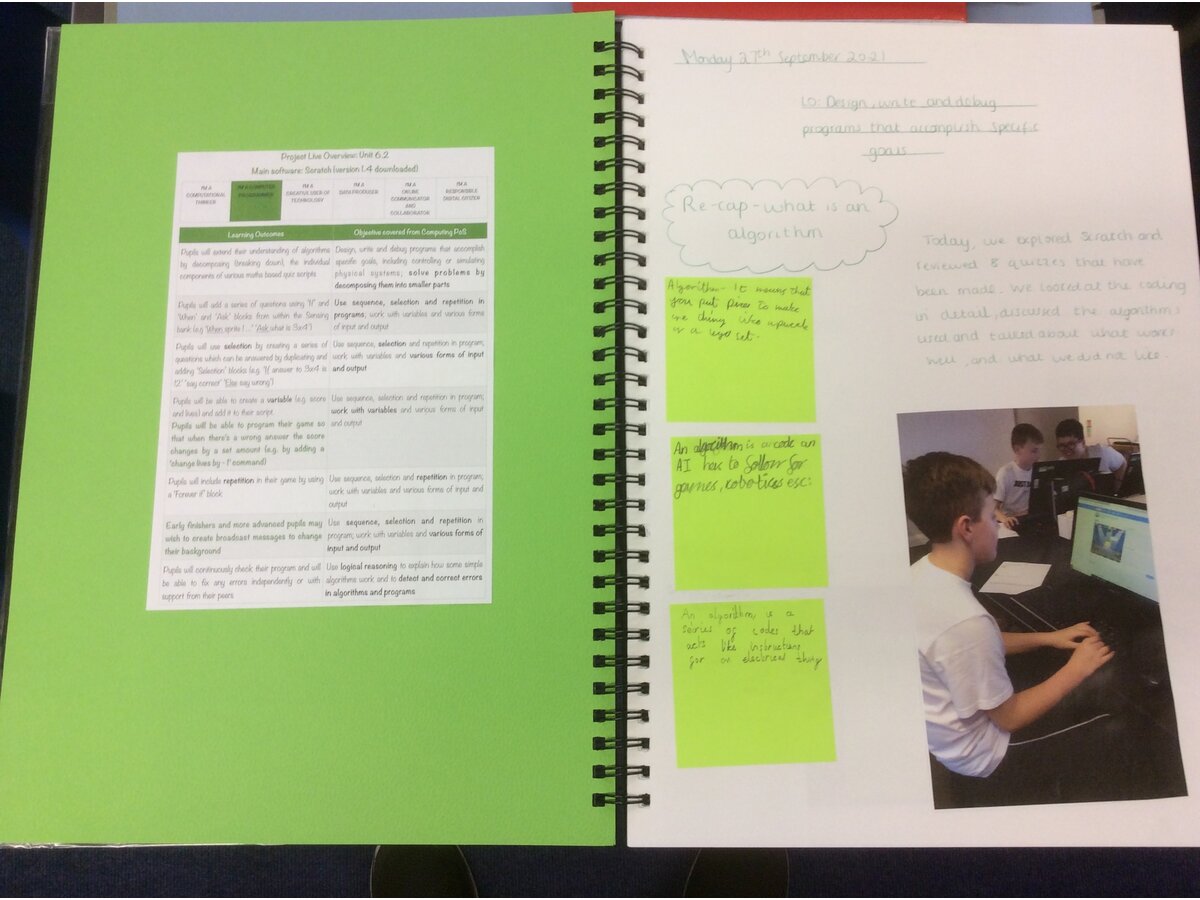 Project Live Overview: Unit 6.2
Main software: Scratch (version 1.4 downloaded)
I'M A
COMPUTATIONAL
THINKER
I'M A COMPUTER
PROGRAMMER
I'M A
CREATIVE USER OF
TECHNOLOGY
I'M A
DATA PRODUCER
I'M A
ONLINE
COMMUNICATOR
AND
COLLABORATOR
I'M A
RESPONSIBLE
DIGITAL CITIZEN
Learning Outcomes
Objective covered from Computing PoS
Pupils will extend their understanding of algorithms
by decomposing (breaking down), the individual
components of various maths based quiz scripts.
Design, write and debug programs that accomplish
specific goals, including controlling or simulating
physical systems; solve problems by
decomposing them into smaller parts
Pupils will add a series of questions using 'If' and
'When' and 'Ask' blocks from within the Sensing
bank (e.g 'When sprite 1...' 'Ask what is 3x4')
Use sequence, selection and repetition in
programs; work with variables and various forms
of input and output
Pupils will use selection by creating a series of
questions which can be answered by duplicating and
adding 'Selection' blocks (e.g. 'If answer to 3x4 is
12' 'say correct' 'Else say wrong')
Use sequence, selection and repetition in program;
work with variables and various forms of input
and output
Pupils will be able to create a variable (e.g. score
and lives) and add it to their script.
Pupils will be able to program their game so
that when there's a wrong answer the score
changes by a set amount (e.g. by adding a
'change lives by - 1' command)
Use sequence, selection and repetition in program;
work with variables and various forms of input
and output
Pupils will include repetition in their game by using
a "Forever if" block
Use sequence, selection and repetition in program;
work with variables and various forms of input and
output
Early finishers and more advanced pupils may
wish to create broadcast messages to change
their background
Use sequence, selection and repetition in
program; work with variables and various forms of
input and output
Pupils will continuously check their program and will
be able to fix any errors independently or with
support from their peers
Use logical reasoning to explain how some simple
algorithms work and to detect and correct errors
in algorithms and programs
Monday 27th September 2021
LO: Design, write and debug
programs that accomplish specific
goals.
Re-cap - what is an
algorithm
Algorithm - It means that
you put to make
one thing like
is a lego set.
An algorithm is a code an
AI has to follow for
games, robotics esc:
An algorithm is a
seiries of codes that
acts like instructions
for an electrical thing
Today, we explored Scratch and
reviewed 8 quizzes that have
been made. We looked at the coding
in detail, discussed the algorithms
used and talked about what works
well, and what we did not like.